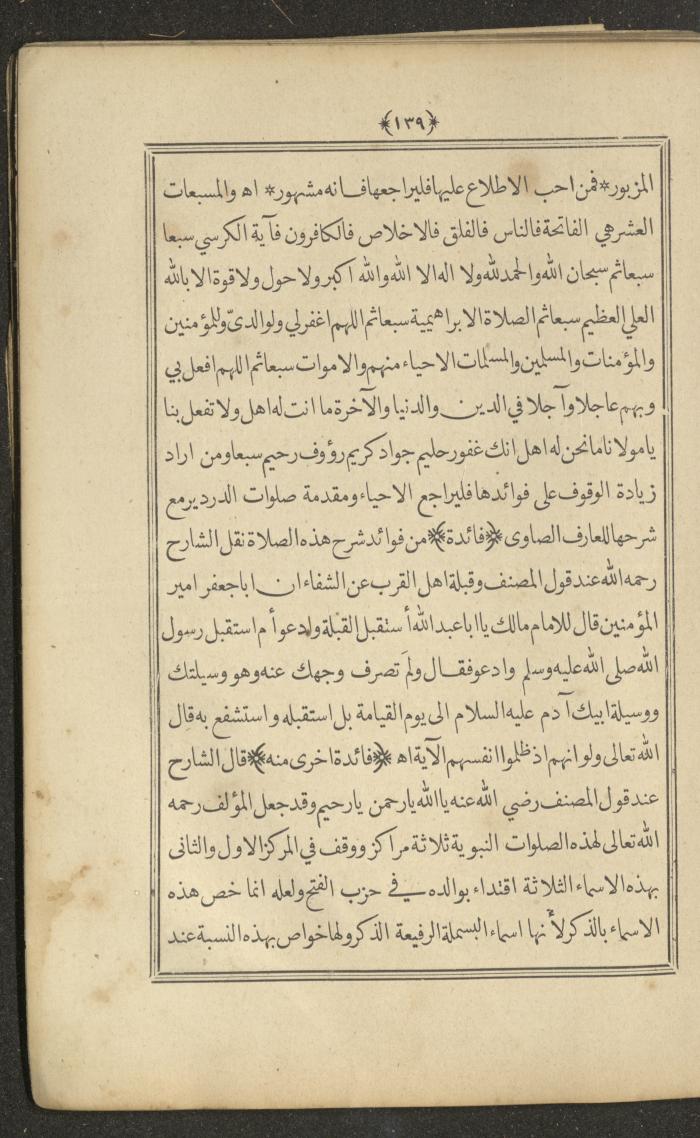 ﴿١٣٩﴾
المزبور * فمن احب الاطلاع عليها فليراجعها فانه مشهور * اه والمسبعات
العشر هي الفاتحة فالناس فالفلق فالاخلاص فالكافرون فآية الكرسي سبعا
سبعا ثم سبحان الله والحمد لله ولا اله الا الله والله اكبر ولا حول ولا قوة الا بالله
العلي العظيم سبعا ثم الصلاة الابراهيمية سبعا ثم اللهم اغفر لي ولوالديّ وللمؤمنين
والمؤمنات والمسلمين والمسلمات الاحياء منهم والاموات سبعا ثم اللهم افعل بي
وبهم عاجلا وآجلا في الدين والدنيا والآخرة ما انت له اهل ولا تفعل بنا
يا مولانا ما نحن له اهل انك غفور حليم جواد كريم رؤوف رحيم سبعا ومن اراد
زيادة الوقوف على فوائدها فليراجع الاحياء ومقدمة صلوات الدردير مع
شرحها للعارف الصاوى ﴿فائدة﴾ من فوائد شرح هذه الصلاة نقل الشارح
رحمه الله عند قول المصنف وقبلة اهل القرب عن الشفاء ان ابا جعفر امير
المؤمنين قال للامام مالك يا ابا عبد الله أستقبل القبلة وادعو أم استقبل رسول
الله صلى الله عليه وسلم وادعو فقال ولمَ تصرف وجهك عنه وهو وسيلتك
ووسيلة ابيك آدم عليه السلام الى يوم القيامة بل استقبله واستشفع به قال
الله تعالى ولو انهم اذ ظلموا انفسهم الآية اه ﴿فائدة اخرى منه﴾ قال الشارح
عند قول المصنف رضي الله عنه يا الله يا رحمن يا رحيم وقد جعل المؤلف رحمه
الله تعالى لهذه الصلوات النبوية ثلاثة مراكز ووقف في المركز الاول والثانى
بهذه الاسماء الثلاثة اقتداء بوالده في حزب الفتح ولعله انما خص هذه
الاسماء بالذكر لأنها اسماء البسملة الرفيعة الذكر ولها خواص بهذه النسبة عند